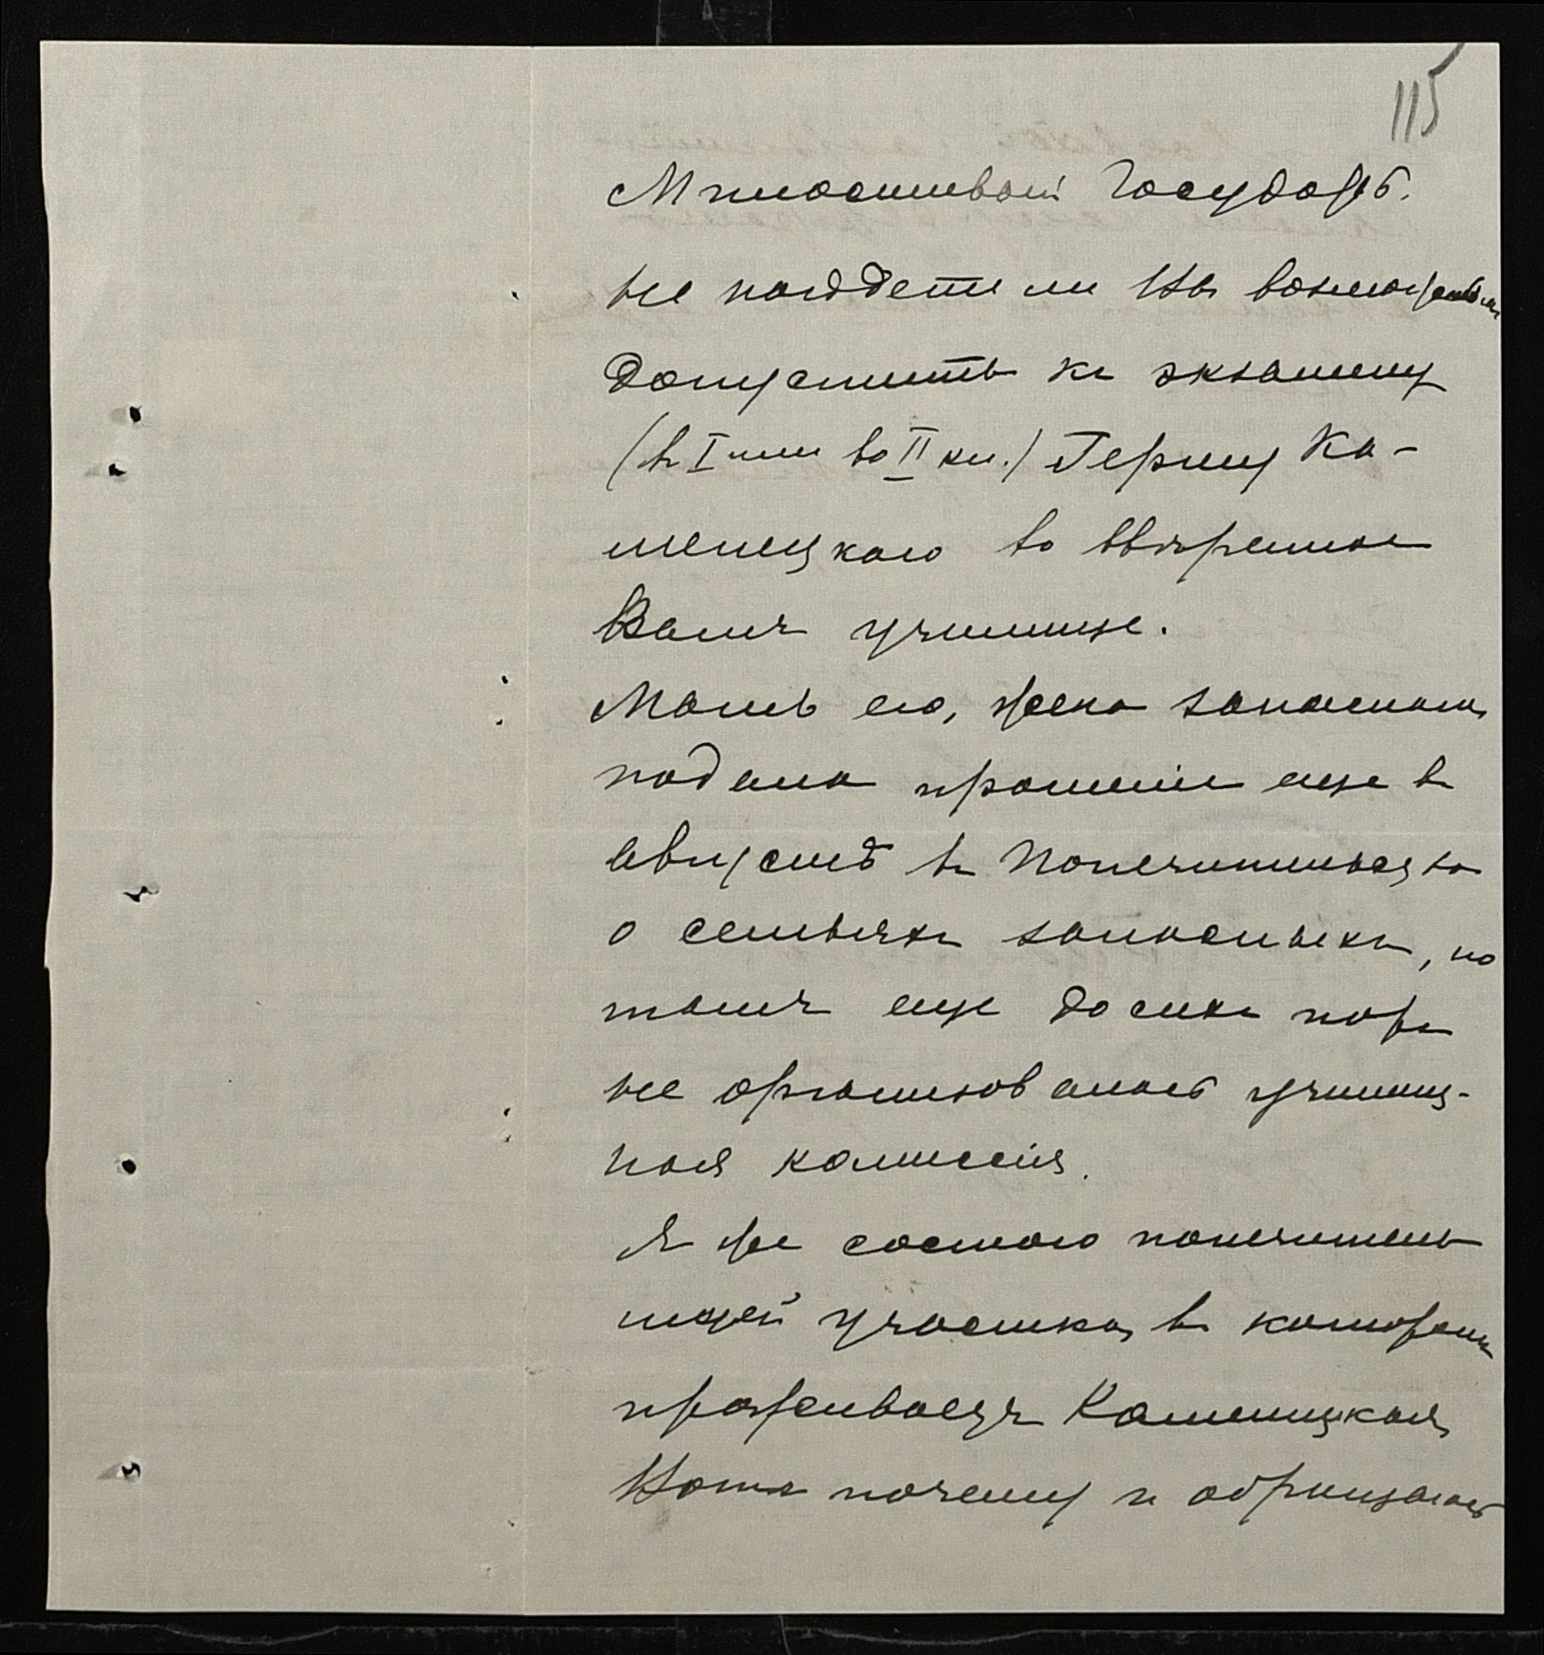 115
Милостивый Государь.
не найдете ли Вы возможным
допустить къ экзамену
(въ I или во II кл.) Герцу Ка-
менецкаго во ввѣренное
Вамъ училище.
Мать его, жена запаснаго,
подала прошеніе еще въ
августѣ въ Попечительство
о семьяхъ запасныхъ, но
тамъ еще до сихъ поръ
не организовалась училищ-
ная комиссія.
Я же состою попечитель-
ницей участка, въ которомъ
проживаетъ Каменецкая,
Вотъ почему и обращаюсь